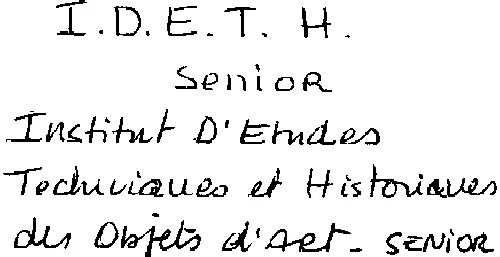 I.D.E.T.H.
Senior
Institut D'Etudes
Techniques et Historiques
des Objets d'Art - SENIOR